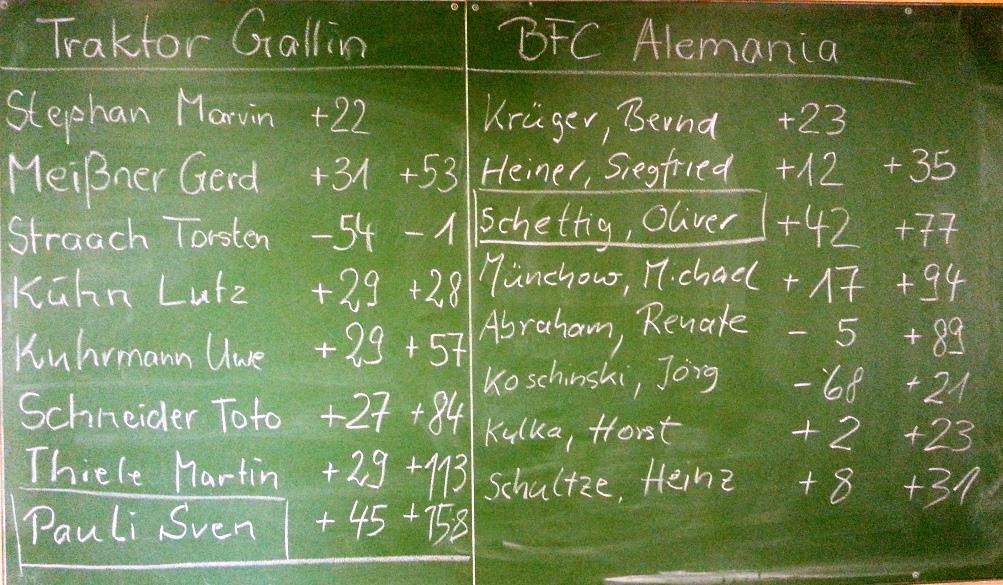 Traktor Gallin
Stephan Marvin +22
Meißner Gerd +31 +53
Straach Torsten -54 -1
Kühn Lutz +29 +28
Kuhrmann Uwe +29 +57
Schneider Toto +27 +84
Thiele Martin +29 +113
Pauli Sven +45 +158
BFC Alemania
Krüger, Bernd +23
Heiner, Siegfried +12 +35
Schettig, Oliver +42 +77
Münchow, Michael +17 +94
Abraham, Renate -5 +89
Koschinski, Jörg -68 +21
Kulka, Horst +2 +23
Schultze, Heinz +8 +31